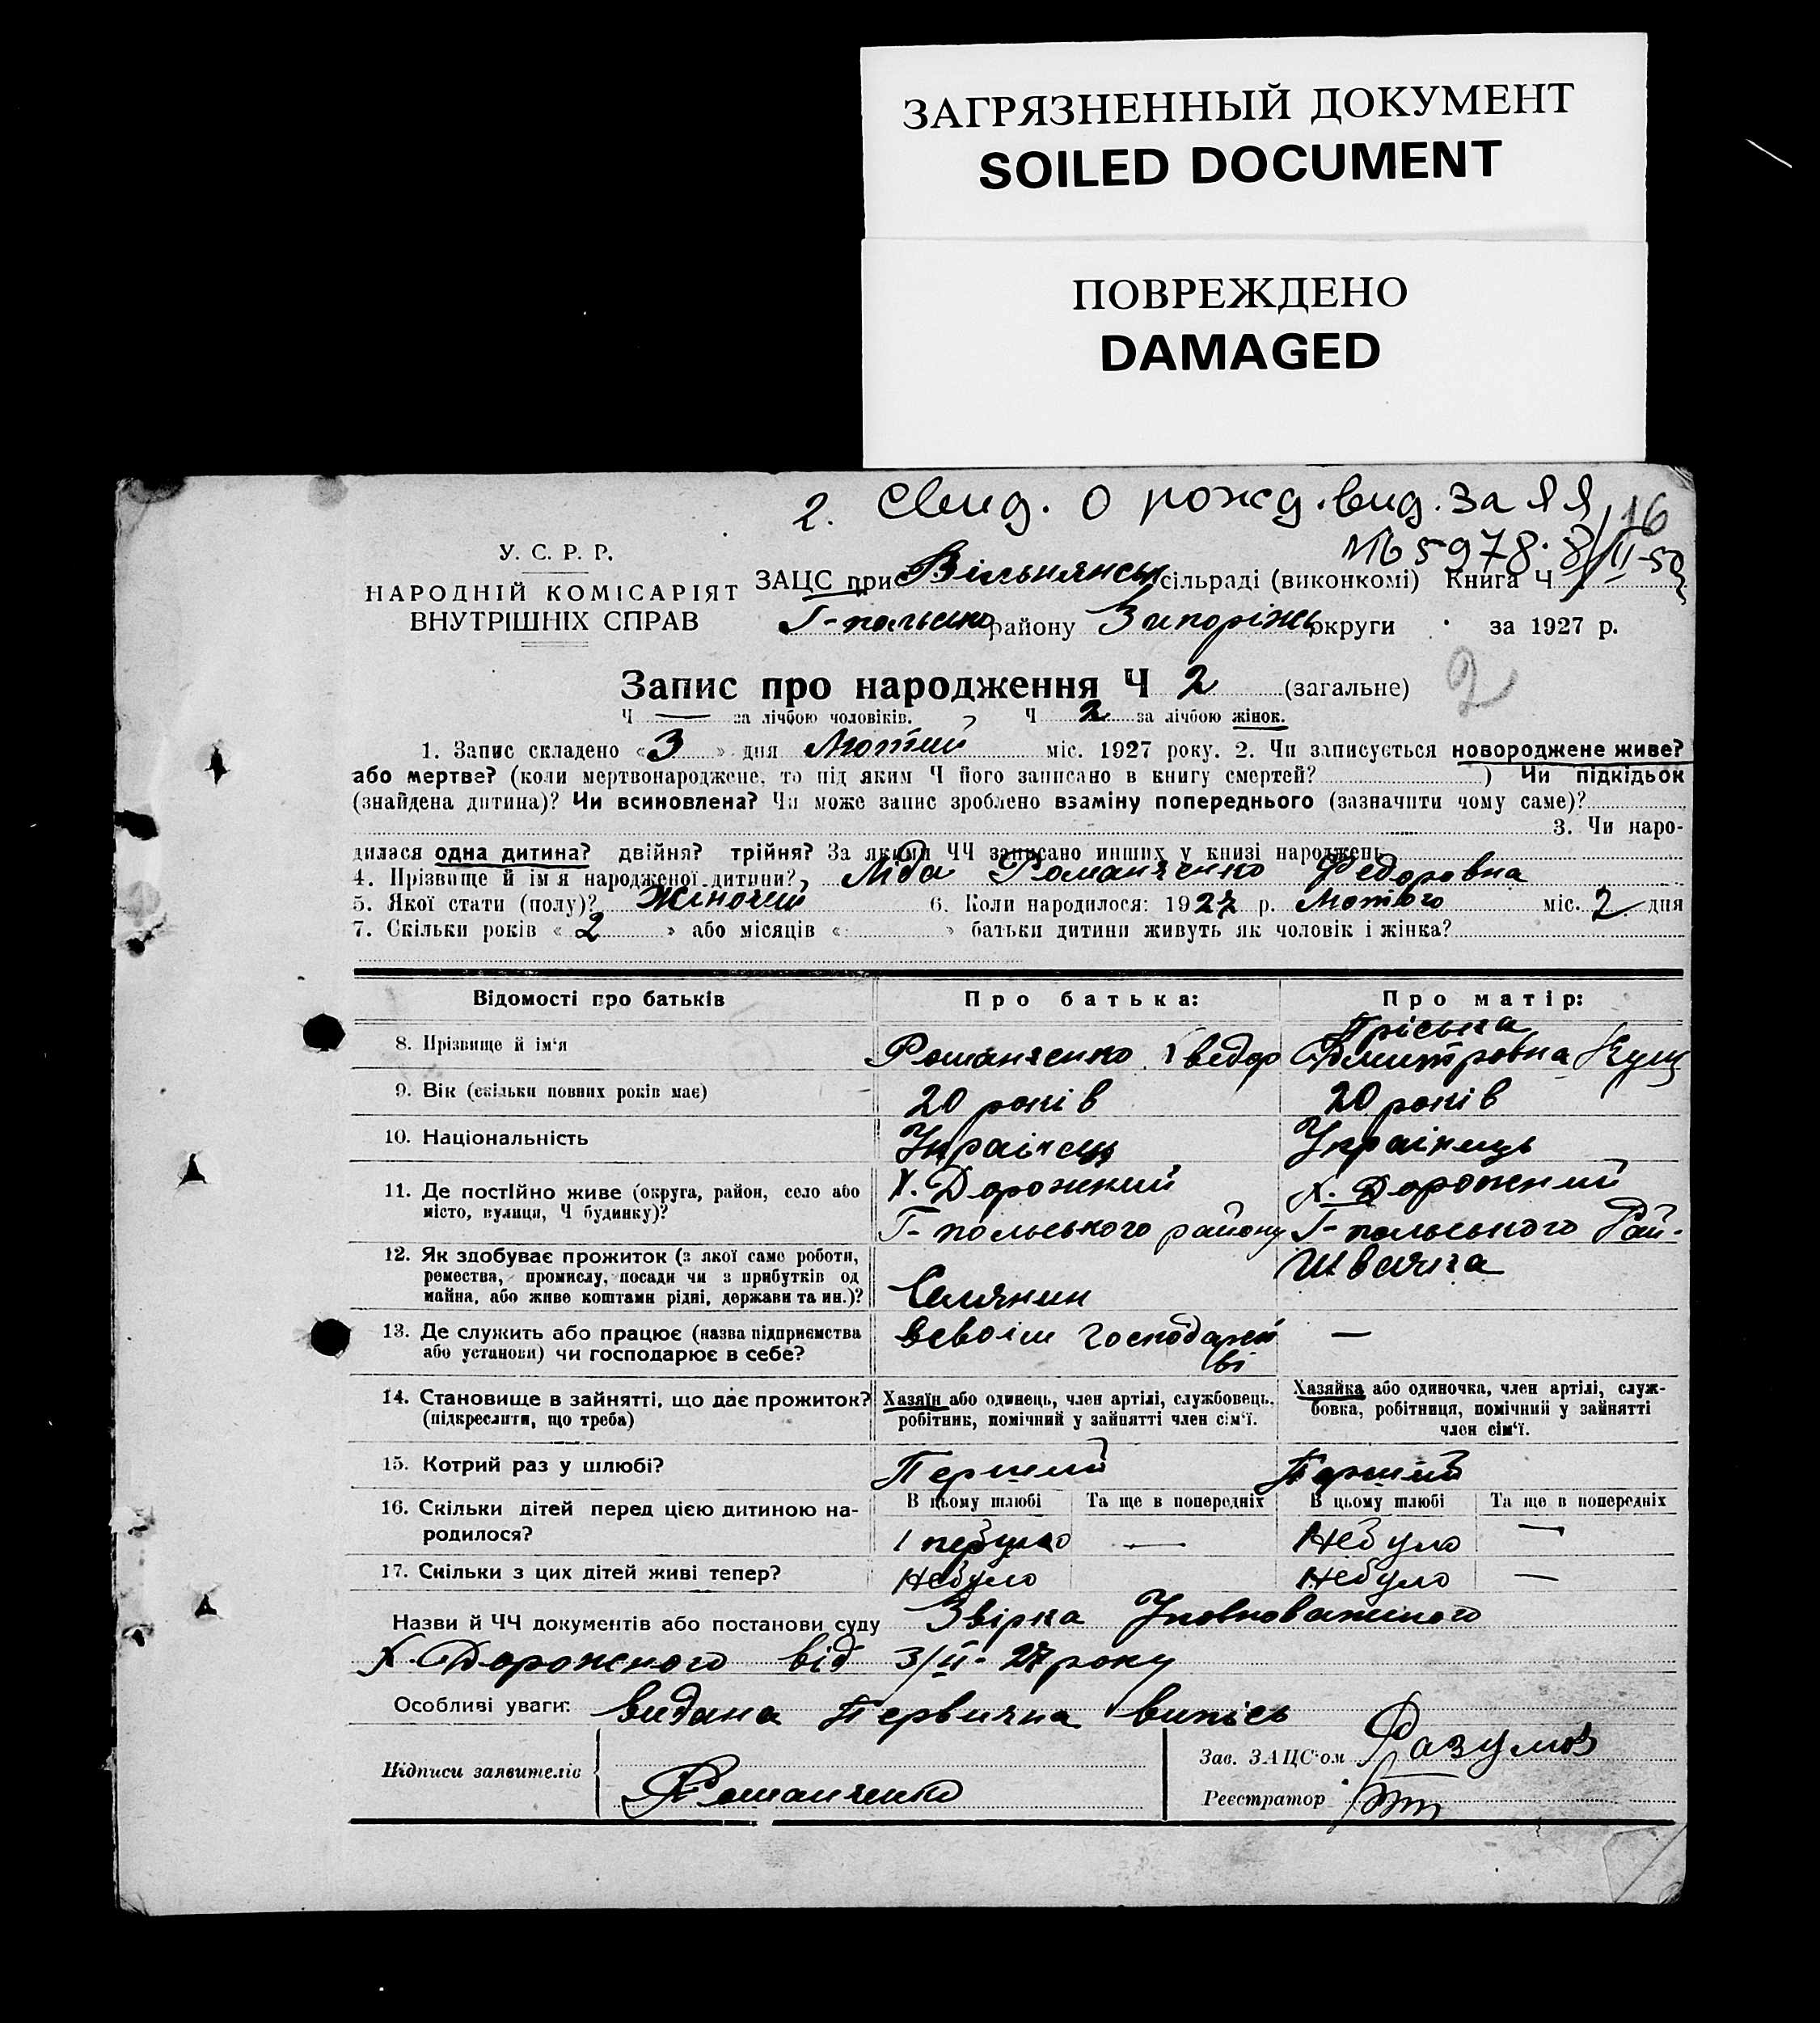 ЗАГРЯЗНЕННЫЙ ДОКУМЕНТ
SOILED DOCUMENT
ПОВРЕЖДЕНО
DAMAGED
2. Свид. о рожд. выд. за ЯЯ 16
№ 65978. 8/II-50
У. С. Р. Р.
НАРОДНІЙ КОМІСАРІЯТ
ВНУТРІШНІХ СПРАВ
ЗАЦС при Вільнянськ сільраді (виконкомі) Книга Ч
Г-польсько району Запоріжь округи за 1927 р.
Запис про народження Ч 2 (загальне) 2
Ч — за лічбою чоловіків. Ч 2 за лічбою жінок.
1. Запис складено «3» дня Лютий міс. 1927 року. 2. Чи записується новороджене живе?
або мертве? (коли мертвонароджене, то під яким Ч його записано в книгу смертей? ) Чи підкідьок
(знайдена дитина)? Чи всиновлена? Чи може запис зроблено взаміну попереднього (зазначити чому саме)?
3. Чи наро-
дилася одна дитина? двійня? трійня? За якими ЧЧ записано инших у книзі народжень
4. Прізвище й імʼя народженої дитини? Ліда Романченко Федоровна
5. Якої стати (полу)? Жіночий 6. Коли народилося: 1927 р. Лютого міс. 2 дня
7. Скільки років «2» або місяців « » батьки дитини живуть як чоловік і жінка?
Відомості про батьків Про батька: Про матір:
8. Прізвище й імʼя Романченко Хведор Пріська Дмитровна Кущ
9. Вік (скільки повних років має) 20 років 20 років
10. Національність Українець Українець
11. Де постійно живе (округа, район, село або місто, вулиця, Ч будинку)? Х. Дорожний Г-польського району Х. Дорожний Г-польського Рай-
12. Як здобуває прожиток (з якої саме роботи, ремества, промислу, посади чи з прибутків од майна, або живе коштами рідні, держави та ин.)? Селянин Швачка
13. Де служить або працює (назва підприємства або установи) чи господарює в себе? Всвоім господарстві —
14. Становище в зайнятті, що дає прожиток? (підкреслити, що треба) Хазяїн або одинець, член артілі, службовець, робітник, помічний у зайнятті член сімʼї. Хазяйка або одиночка, член артілі, служ-
бовка, робітниця, помічний у зайнятті член сімʼї.
15. Котрий раз у шлюбі? Перший Перший
16. Скільки дітей перед цією дитиною на-
родилося? В цьому шлюбі Та ще в попередніх В цьому шлюбі Та ще в попередніх
небуло — Небуло —
17. Скільки з цих дітей живі тепер? Небуло Небуло —
Назви й ЧЧ документів або постанови суду Звірка Уповноваженого
Х. Дорожного від 3/II-27 року
Особливі уваги: видана Первична випісь
Підписи заявителів Романченко
Зав. ЗАЦС'ом Разумов
Реєстратор